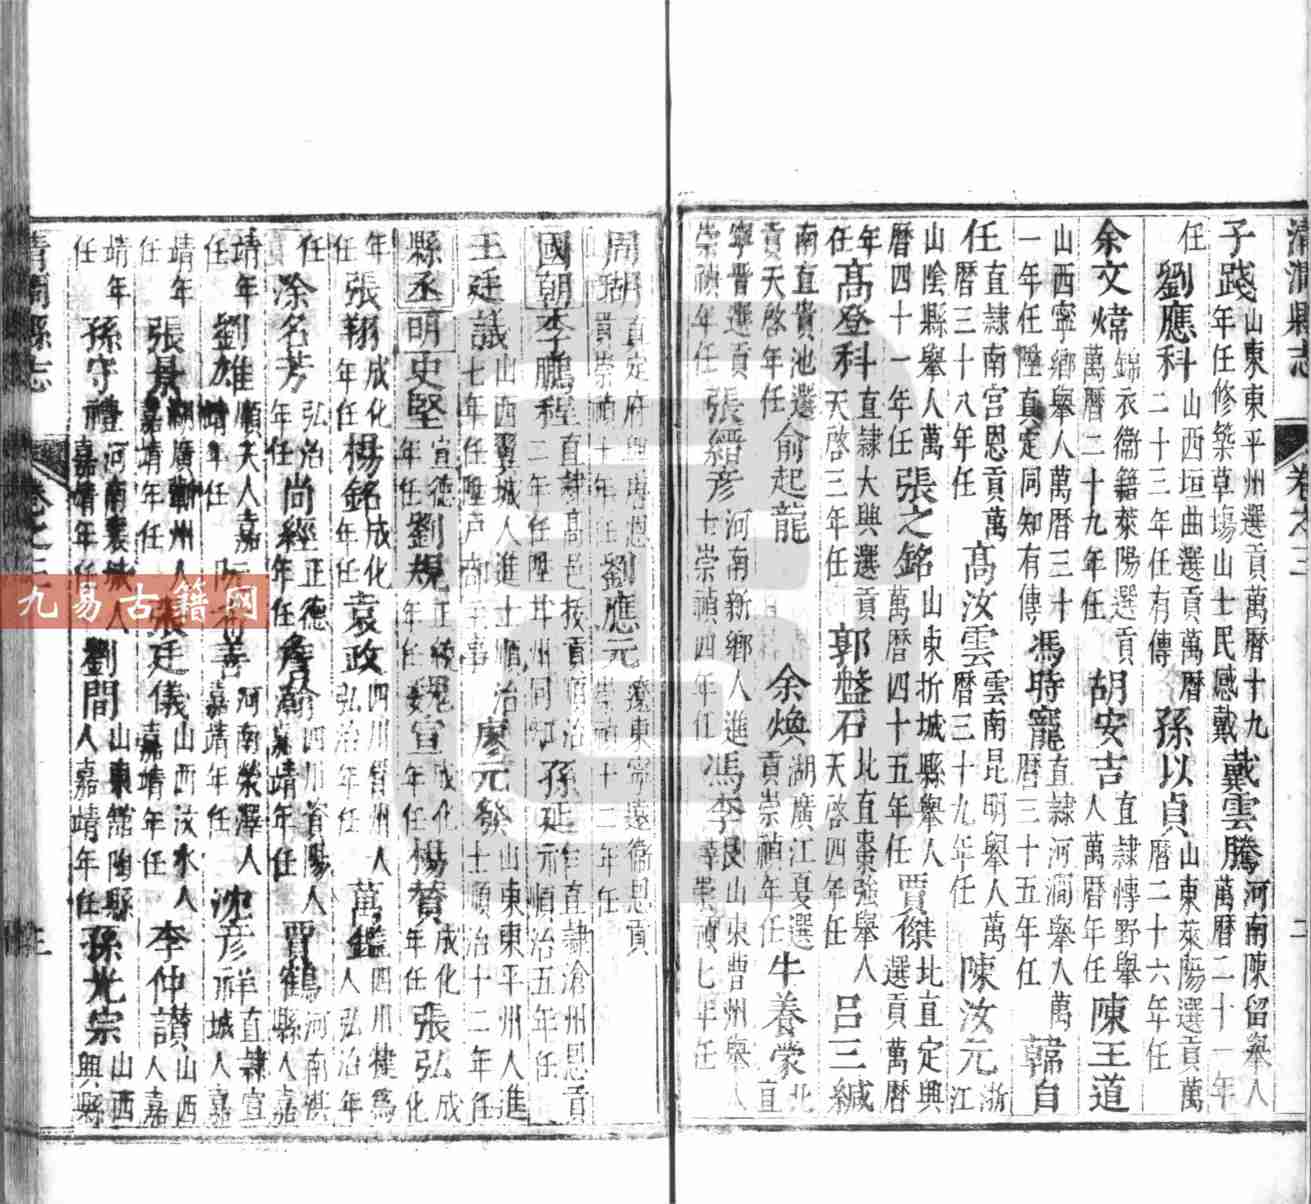 清澗縣志　卷之三　三
子踐山東東平州選貢萬曆十九年任修築草塲山士民感戴　戴雲騰河南陳留舉人萬曆二十一年
任　劉應科山西垣曲選貢萬曆二十三年任有傳　孫以貞山東萊陽選貢萬曆二十六年任
余文煒錦衣衞籍萊陽選貢萬曆二十九年任　胡安吉直隷慱野舉人萬曆年任　陳王道
山西寧鄉舉人萬曆三十一年任陞真定同知有傳　馮時寵直隷河澗舉人萬曆三十五年任　韓自
任直隷南宫恩貢萬曆三十八年任　髙汝雲雲南昆明舉人萬曆三十九年任　陳汝元浙江
山陰縣舉人萬曆四十一年任　張之銘山東折城縣舉人萬曆四十五年任　賈傑北直定興選貢萬曆
年任　髙登科直隷大興選貢天啓三年任　郭盤石北直棗强舉人天啓四年任　吕三緘
南直貴池選貢天啓年任　俞起龍　余煥湖廣江夏選貢崇禎年任　牛養蒙北直
寧晋選貢崇禎年任　張縉彦河南新鄉人進士崇禎四年任　馮李山東曹州舉人崇禎七年任
周瑚直定府崇禎十年任　劉應元遼東寧遠衞恩貢崇禎十二年任
國朝　李鵬程直隷髙邑拔貢順治二年任陞井州同知　孫延直隷滄州恩貢順治五年任
王廷議山西翼城人進士順治七年任陞户　廖元發山東東平州人進士順治十二年任
縣丞　明　史堅宣德年任　劉規正統年任　姜宣成化年任　楊賛成化年任　張弘成化
年任　張翔成化年任　楊銘成化年任　袁政四川眉州人弘治年任　萬鑑四川犍爲人弘治年
任　凃名芳弘治年任　尚經正德年任　詹瀚四川資陽人嘉靖年任　賈鶴河南祺縣人嘉
靖年任　劉雄順天人嘉靖年任　善河南榮澤人嘉靖年任　沈彦祥直隷宣城人嘉
靖年任　張景湖廣州人嘉靖年任　張廷儀山西汶水人嘉靖年任　李仲讃山西人嘉
靖年任　孫守禮河南人嘉靖年任　劉間山東舘陶縣人嘉靖年任　孫光宗山西興縣
清澗縣志　卷之三
九易古籍网